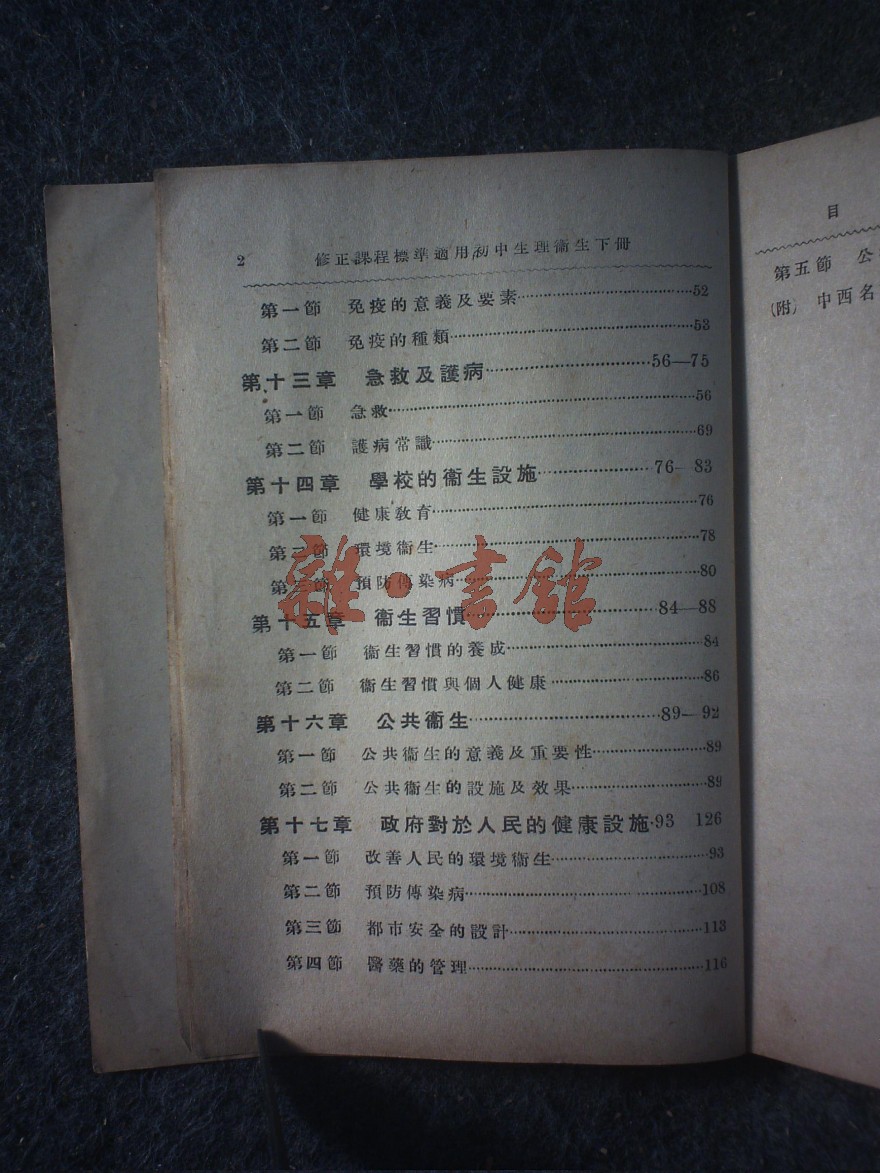 2 修正課程標準適用初中生理衞生下冊
第一節 免疫的意義及要素……52
第二節 免疫的種類……53
第十三章 急救及護病……56—75
第一節 急救……56
第二節 護病常識……69
第十四章 學校的衞生設施……76—83
第一節 健康敎育……76
第二節 環境衞生……78
第三節 預防傳染病……80
雜·書館
第十五章 衞生習慣……84—88
第一節 衞生習慣的養成……84
第二節 衞生習慣與個人健康……86
第十六章 公共衞生……89—92
第一節 公共衞生的意義及重要性……89
第二節 公共衞生的設施及效果……89
第十七章 政府對於人民的健康設施·93 126
第一節 改善人民的環境衞生……93
第二節 預防傳染病……108
第三節 都市安全的設計……113
第四節 醫藥的管理……116
目
第五節 公
(附) 中西名